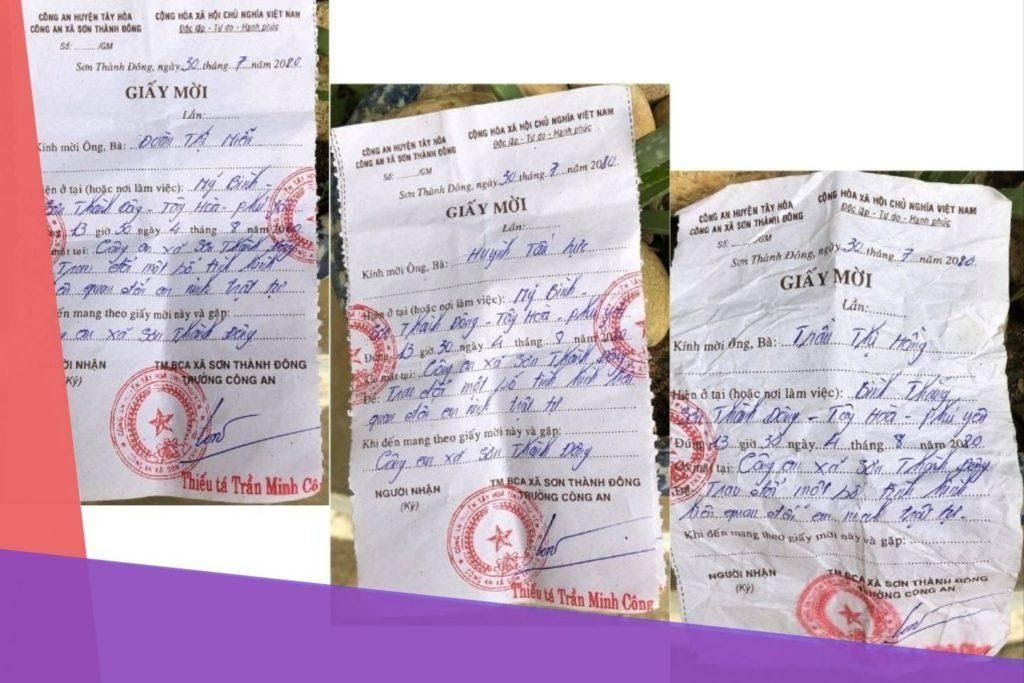 CÔNG AN HUYỆN TÂY HÒA
CÔNG AN XÃ SƠN THÀNH ĐÔNG
CỘNG HÒA XÃ HỘI CHỦ NGHĨA VIỆT NAM
Độc lập - Tự do - Hạnh phúc
Số: ........./GM
Sơn Thành Đông, ngày 30 tháng 7 năm 2020
GIẤY MỜI
Lần:..........
Kính mời Ông, Bà: Đoàn Thị Hiền
Hiện ở tại (hoặc nơi làm việc): Mỹ Bình -
Sơn Thành Đông - Tây Hòa - Phú Yên
13 giờ 30 ngày 4 tháng 8 năm 2020
mặt tại: Công an xã Sơn Thành Đông
Trao đổi một số tình hình
liên quan đến an ninh trật tự
đến mang theo giấy mời này và gặp:
Công an xã Sơn Thành Đông
NGƯỜI NHẬN
(Ký)
TM.BCA XÃ SƠN THÀNH ĐÔNG
TRƯỞNG CÔNG AN
Thiếu tá Trần Minh Cô
CÔNG AN HUYỆN TÂY HÒA
CÔNG AN XÃ SƠN THÀNH ĐÔNG
CỘNG HÒA XÃ HỘI CHỦ NGHĨA VIỆT NAM
Độc lập - Tự do - Hạnh phúc
Số: ........./GM
Sơn Thành Đông, ngày 30 tháng 7 năm 2020
GIẤY MỜI
Lần:..........
Kính mời Ông, Bà: Huỳnh Tấn Lực
Hiện ở tại (hoặc nơi làm việc): Mỹ Bình -
Sơn Thành Đông - Tây Hòa - Phú Yên
Đúng 13 giờ 30 ngày 4 tháng 8 năm 2020
Có mặt tại: Công an xã Sơn Thành Đông
Để: Trao đổi một số tình hình liên
quan đến an ninh trật tự
Khi đến mang theo giấy mời này và gặp:
Công an xã Sơn Thành Đông
NGƯỜI NHẬN
(Ký)
TM.BCA XÃ SƠN THÀNH ĐÔNG
TRƯỞNG CÔNG AN
Thiếu tá Trần Minh Công
CÔNG AN HUYỆN TÂY HÒA
CÔNG AN XÃ SƠN THÀNH ĐÔNG
CỘNG HÒA XÃ HỘI CHỦ NGHĨA VIỆT NAM
Độc lập - Tự do - Hạnh phúc
Số: ........./GM
Sơn Thành Đông, ngày 30 tháng 7 năm 2020
GIẤY MỜI
Lần:..........
Kính mời Ông, Bà: Trần Thị Hồng
Hiện ở tại (hoặc nơi làm việc): Bình Thắng
Sơn Thành Đông - Tây Hòa - Phú Yên
Đúng 13 giờ 30 ngày 4 tháng 8 năm 2020
Có mặt tại: Công an xã Sơn Thành Đông
Để: Trao đổi một số tình hình
liên quan đến an ninh trật tự
Khi đến mang theo giấy mời này và gặp:
NGƯỜI NHẬN
(Ký)
TM.BCA XÃ SƠN THÀNH ĐÔNG
TRƯỞNG CÔNG AN